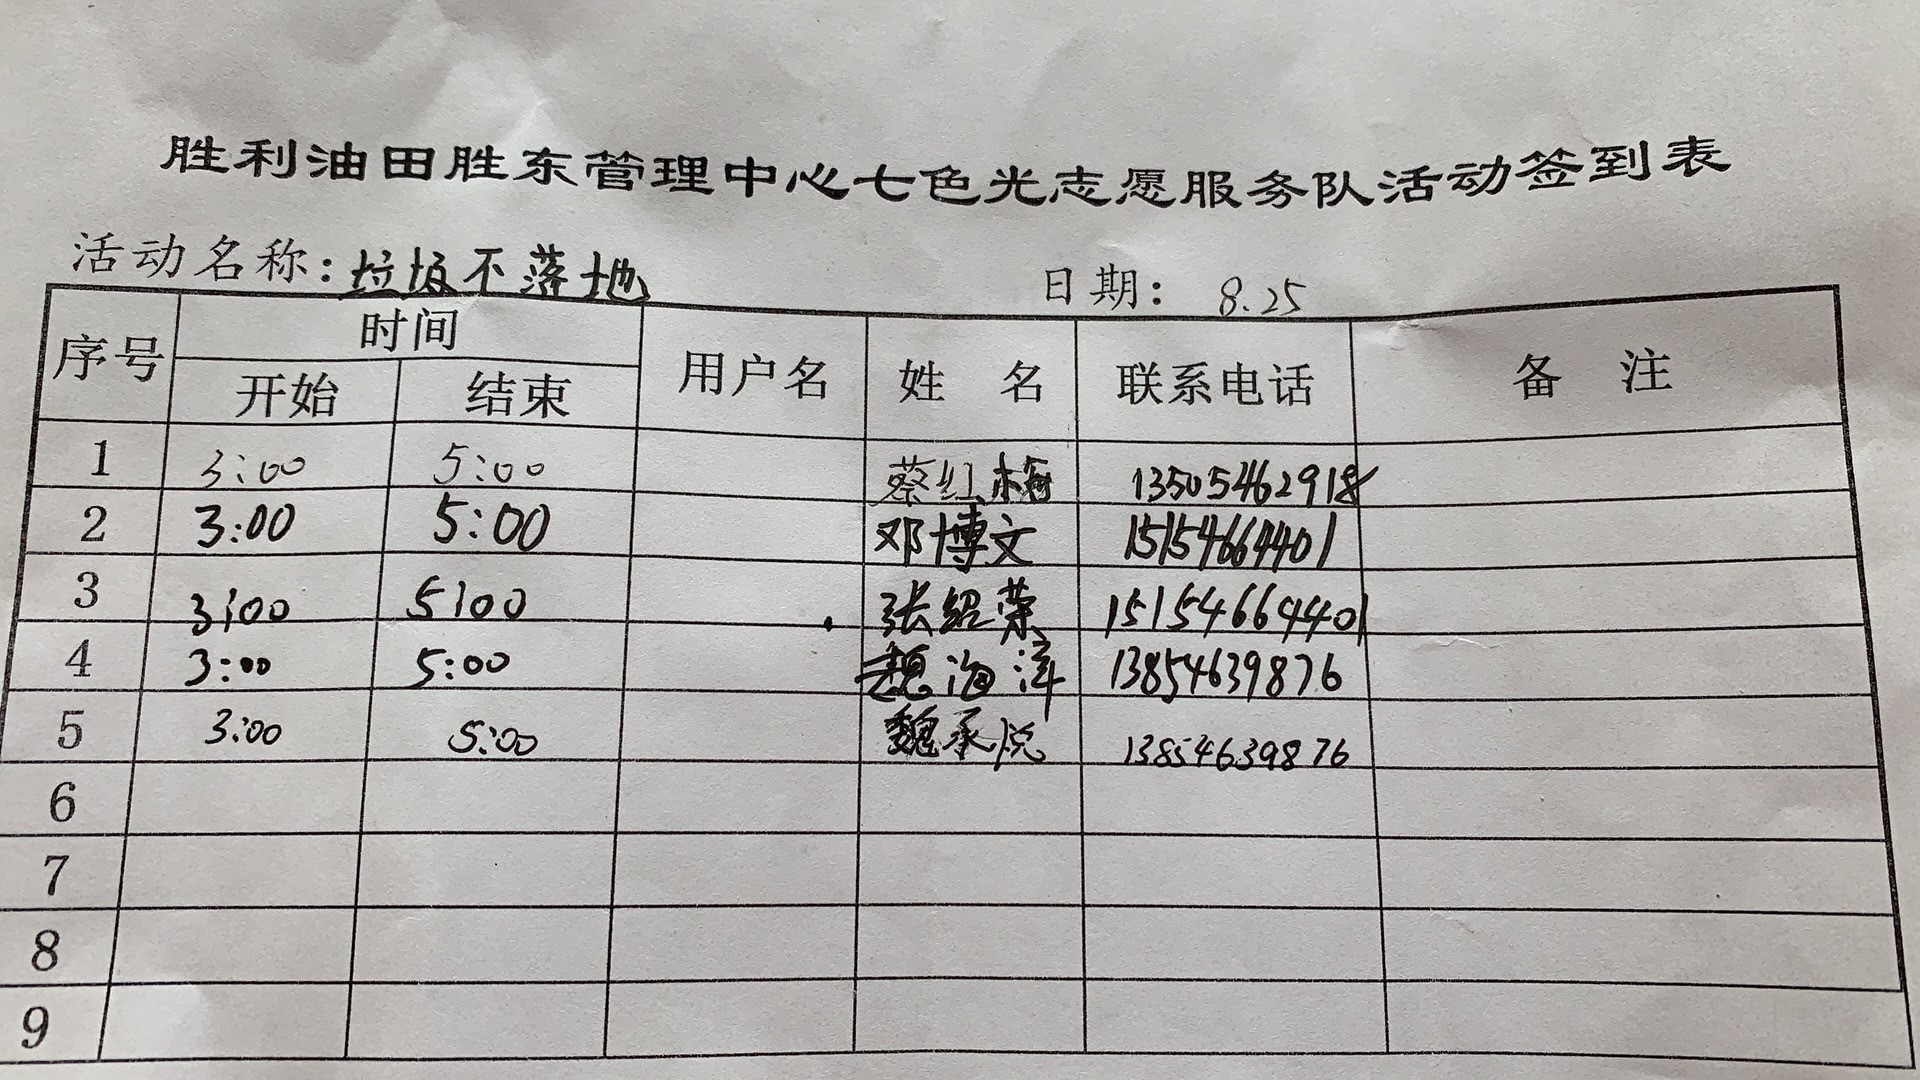 胜利油田胜东管理中心七色光志愿服务队活动签到表
活动名称：垃圾不落地 日期： 8.25
序号 时间 用户名 姓 名 联系电话 备 注
开始 结束
1 3:00 5:00 蔡红梅 13505462918
2 3:00 5:00 邓博文 15154664401
3 3:00 5:00 张绍荣 15154664401
4 3:00 5:00 魏海洋 13854639876
5 3:00 5:00 魏承悦 13854639876
6
7
8
9